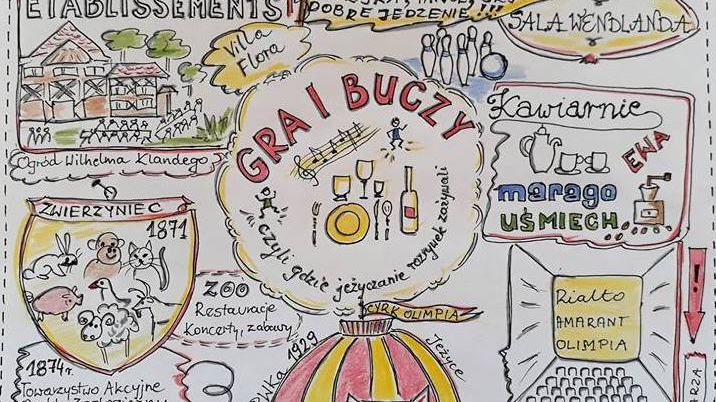 ETABLISSEMENTS
DOBRE JEDZENIE!!!
SALA WENDLANDA
Villa
Flora
GRA I BUCZY
czyli gdzie jeżyczanie rozrywek zażywali
Kawiarnie
EWA
marago
UŚMIECH
Ogród Wilhelma Klandego
ZWIERZYNIEC
1871
ZOO
Restauracje
Koncerty, zabawy
CYRK OLIMPIA
1929
Jeżyce
Rialto
AMARANT
OLIMPIA
1874r.
Towarzystwo Akcyjne